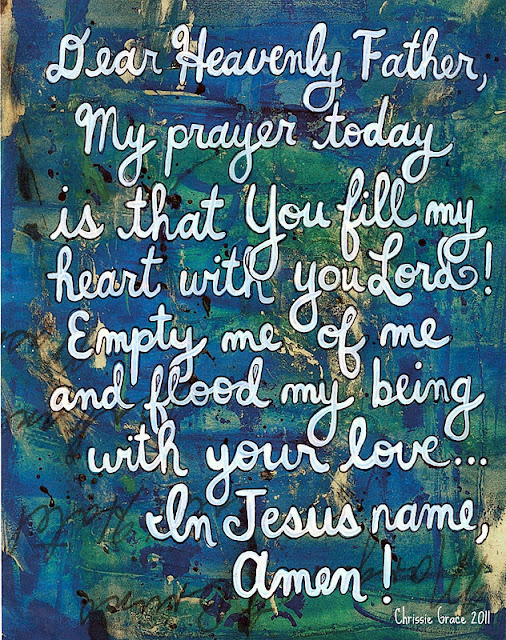 Dear Heavenly Father,
My prayer today
is that You fill my
heart with you Lord!
Empty me of me
and flood my being
with your love...
In Jesus name,
Amen!
Chrissie Grace 2011